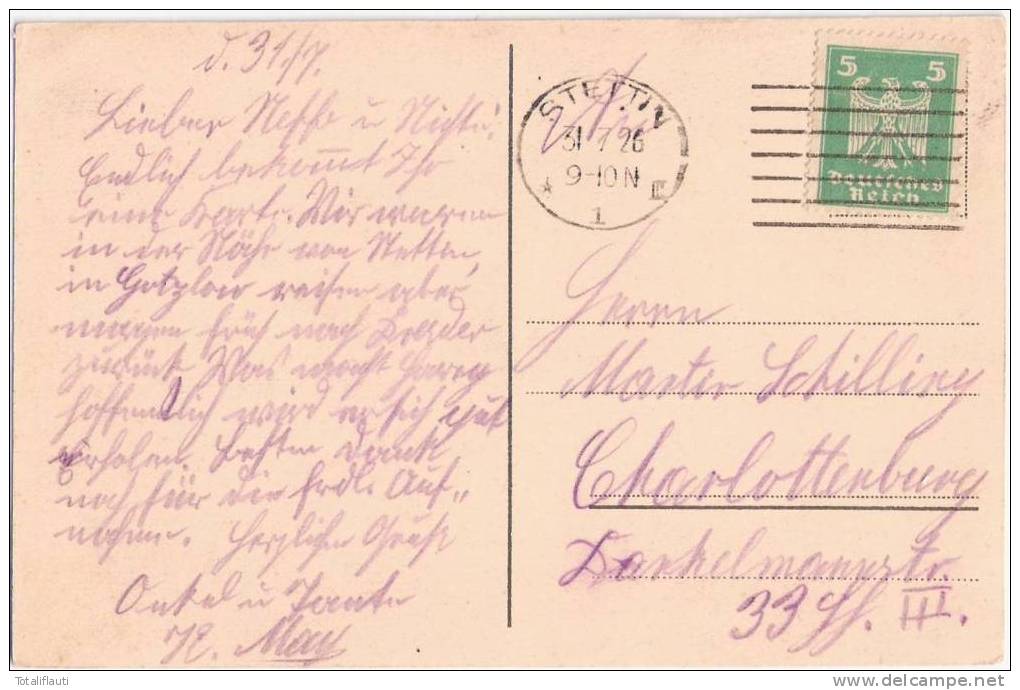 d. 31./7.
Lieber Neffe u Nichte!
Endlich bekommt Ihr
eine Karte. Wir waren
in der Nähe von Stettin,
in Gotzlow reisen aber
morgen früh nach Dresden
zurück Was macht Harry
hoffentlich wird er sich gut
erholen. Besten Dank
noch für die frdl. Auf„
nahme. Herzlichen Gruß
Onkel u Tante
May
STETTIN
31 7 26
9-10 N
1
5 5
Deutsches
Reich
Herrn
Martin Schilling
Charlottenburg
Dankelmannstr.
33 III.
Totaliflauti
www.delcampe.net